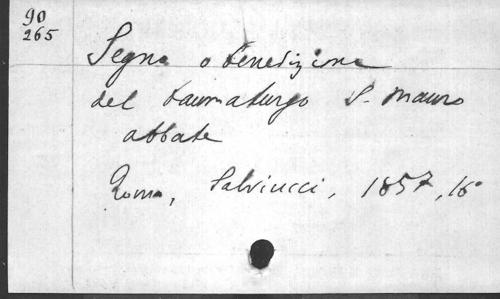 90
265
Segno o benedizione
del taumaturgo S. Mauro
abbate
Roma, Salviucci, 1857, 16°